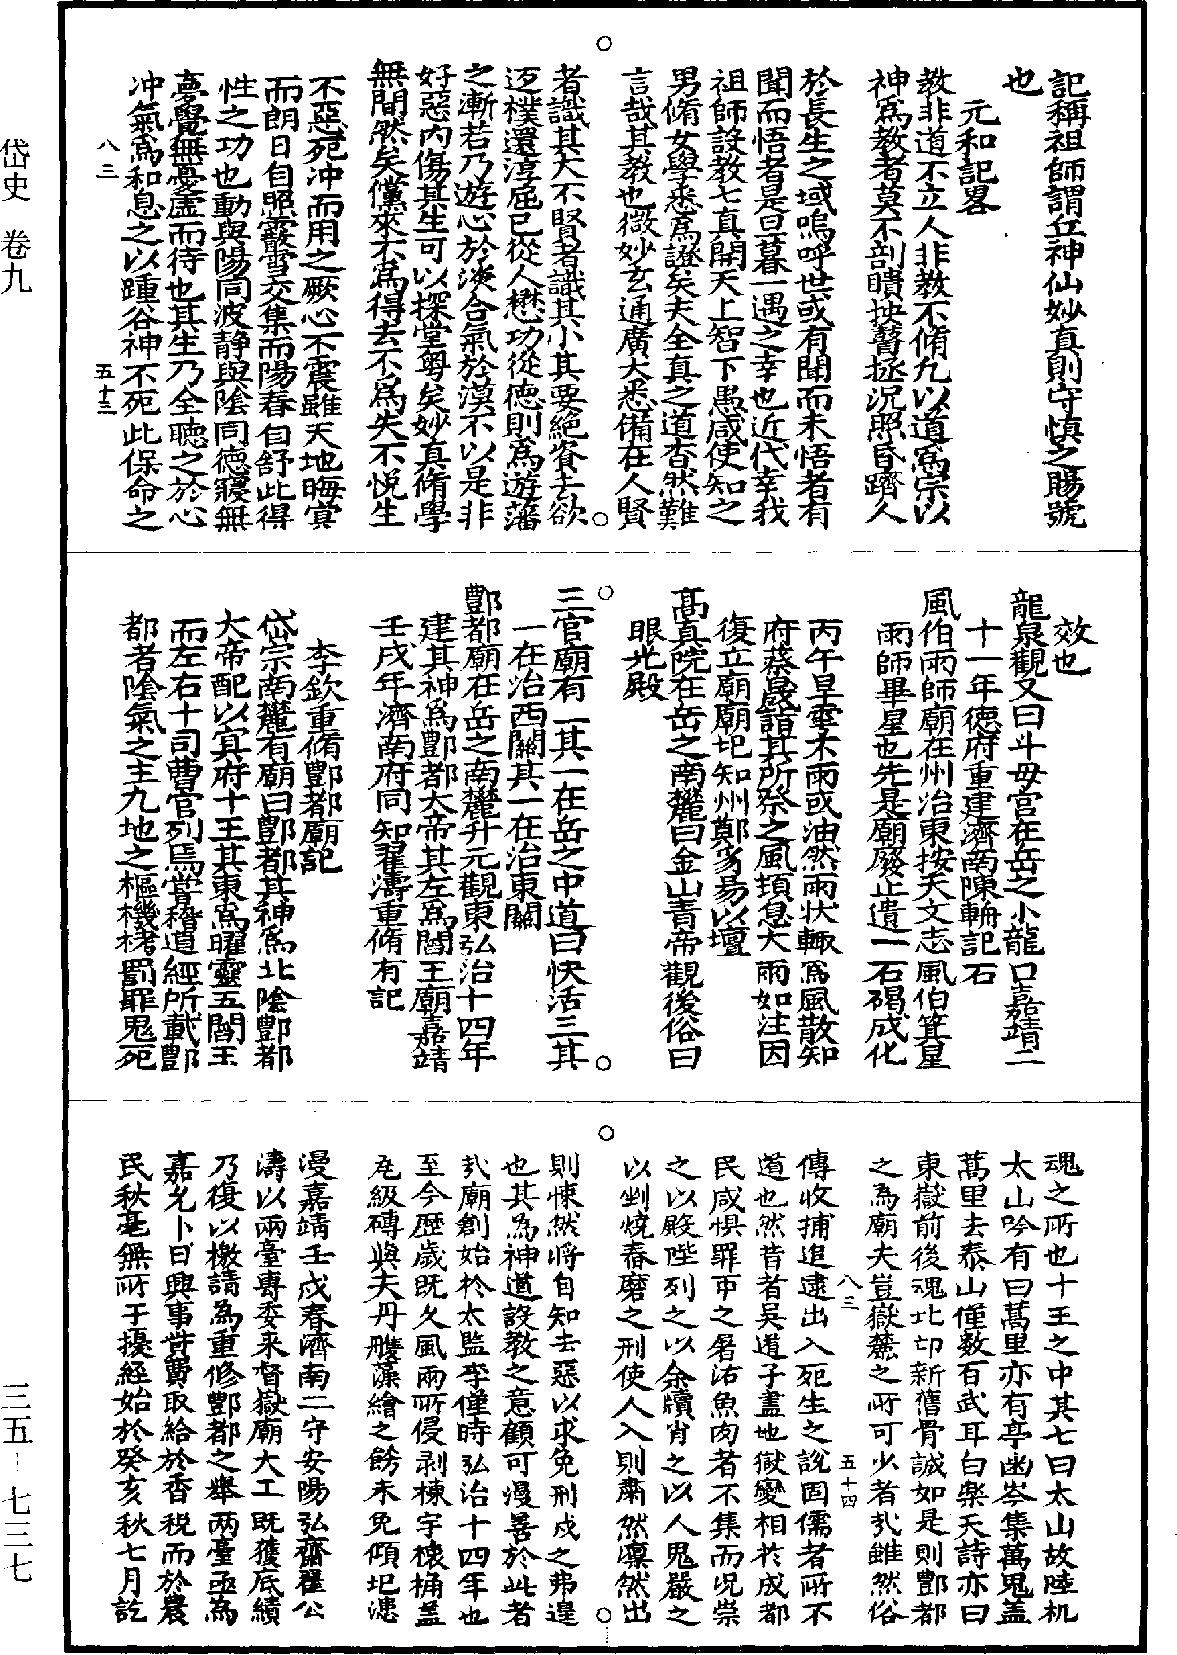 岱史 卷九
三五-七三七
記稱祖師謂丘神仙妙真則守慎之賜號
也
元和記畧
教非道不立人非教不脩九以道爲宗以
神爲教者莫不剖聵抉瞽拯況照昏躋人
於長生之域嗚呼世或有聞而未悟者有
聞而悟者是旦暮一遇之幸也近代幸我
祖師設教七真開天上智下愚咸使知之
男脩女學悉爲證矣夫全真之道杳然難
言哉其教也微妙玄通廣大悉備在人賢
者識其大不賢者識其小其要絕資去欲
返樸還淳屈已從人懋功從德則爲遊藩
之漸若乃遊心於淡合氣於漠不以是非
好惡內傷其生可以探堂粵矣妙真脩學
無間然矣儻來不爲得去不爲失不悅生
不惡死沖而用之厥心不震雖天地晦冥
而朗日自照霰雪交集而陽春自舒此得
性之功也動與陽同波靜與陰同德寢無
夢覺無憂虛而待也其生乃全聽之於心
冲氣爲和息之以踵谷神不死此保命之
八三
五十三
效也
龍泉觀又曰斗母宮在岳之小龍口嘉靖二
十一年德府重建濟南陳輪記石
風伯雨師廟在州治東按天文志風伯箕星
雨師畢星也先是廟廢止遺一石碣成化
丙午旱雩不雨或油然雨狀輙爲風散知
府蔡晟詣其所祭之風頊息大雨如注因
復立廟廟圯知州鄭豸易以壇
高真院在岳之南麓曰金山青帝觀後俗曰
眼光殿
三官廟有二其一在岳之中道曰快活三其
一在治西關其一在治東關
酆都廟在岳之南麓升元觀東弘治十四年
建其神爲酆都大帝其左爲閻王廟嘉靖
壬戌年濟南府同知翟濤重脩有記
李欽重脩酆都廟記
岱宗南麓有廟曰酆都其神爲北陰酆都
大帝配以冥府十王其東爲曜靈五閻王
而左右十司曹官列焉嘗稽道經所載酆
都者陰氣之主九地之樞機栲罰罪鬼死
魂之所也十王之中其七曰太山故陸机
太山吟有曰萬里亦有亭幽岑集萬鬼蓋
萬里去泰山僅数百武耳白樂天詩亦曰
東嶽前後魂北邙新舊骨誠如是則酆都
之爲廟夫豈嶽麓之所可少者㢤雖然俗
傳收捕追逮出入死生之說固儒者所不
道也然昔者吳道子畫地獄變相於成都
民咸惧罪市之屠沽魚肉者不集而况崇
之以殿陛列之以余續肖之以人鬼嚴之
以剉燒舂磨之刑使人入則肅然凜然出
則悚然將自知去惡以求免刑戍之弗遑
也其爲神道設教之意顧可漫善於此者
㢤廟創始於太監李僅時弘治十四年也
至今歷歲既久風雨所侵剥棟宇榱桷蓋
戺級磚與夫丹雘藻繪之餙未免傾圯漶
漫嘉靖壬戌春濟南二守安陽弘齋翟公
濤以兩臺專委来督嶽廟大工既獲底績
乃復以檄請爲重修酆都之舉两臺亟爲
嘉允卜日興事貲費取給於香税而於農
民秋毫無所干擾經始於癸亥秋七月訖
八三
五十四